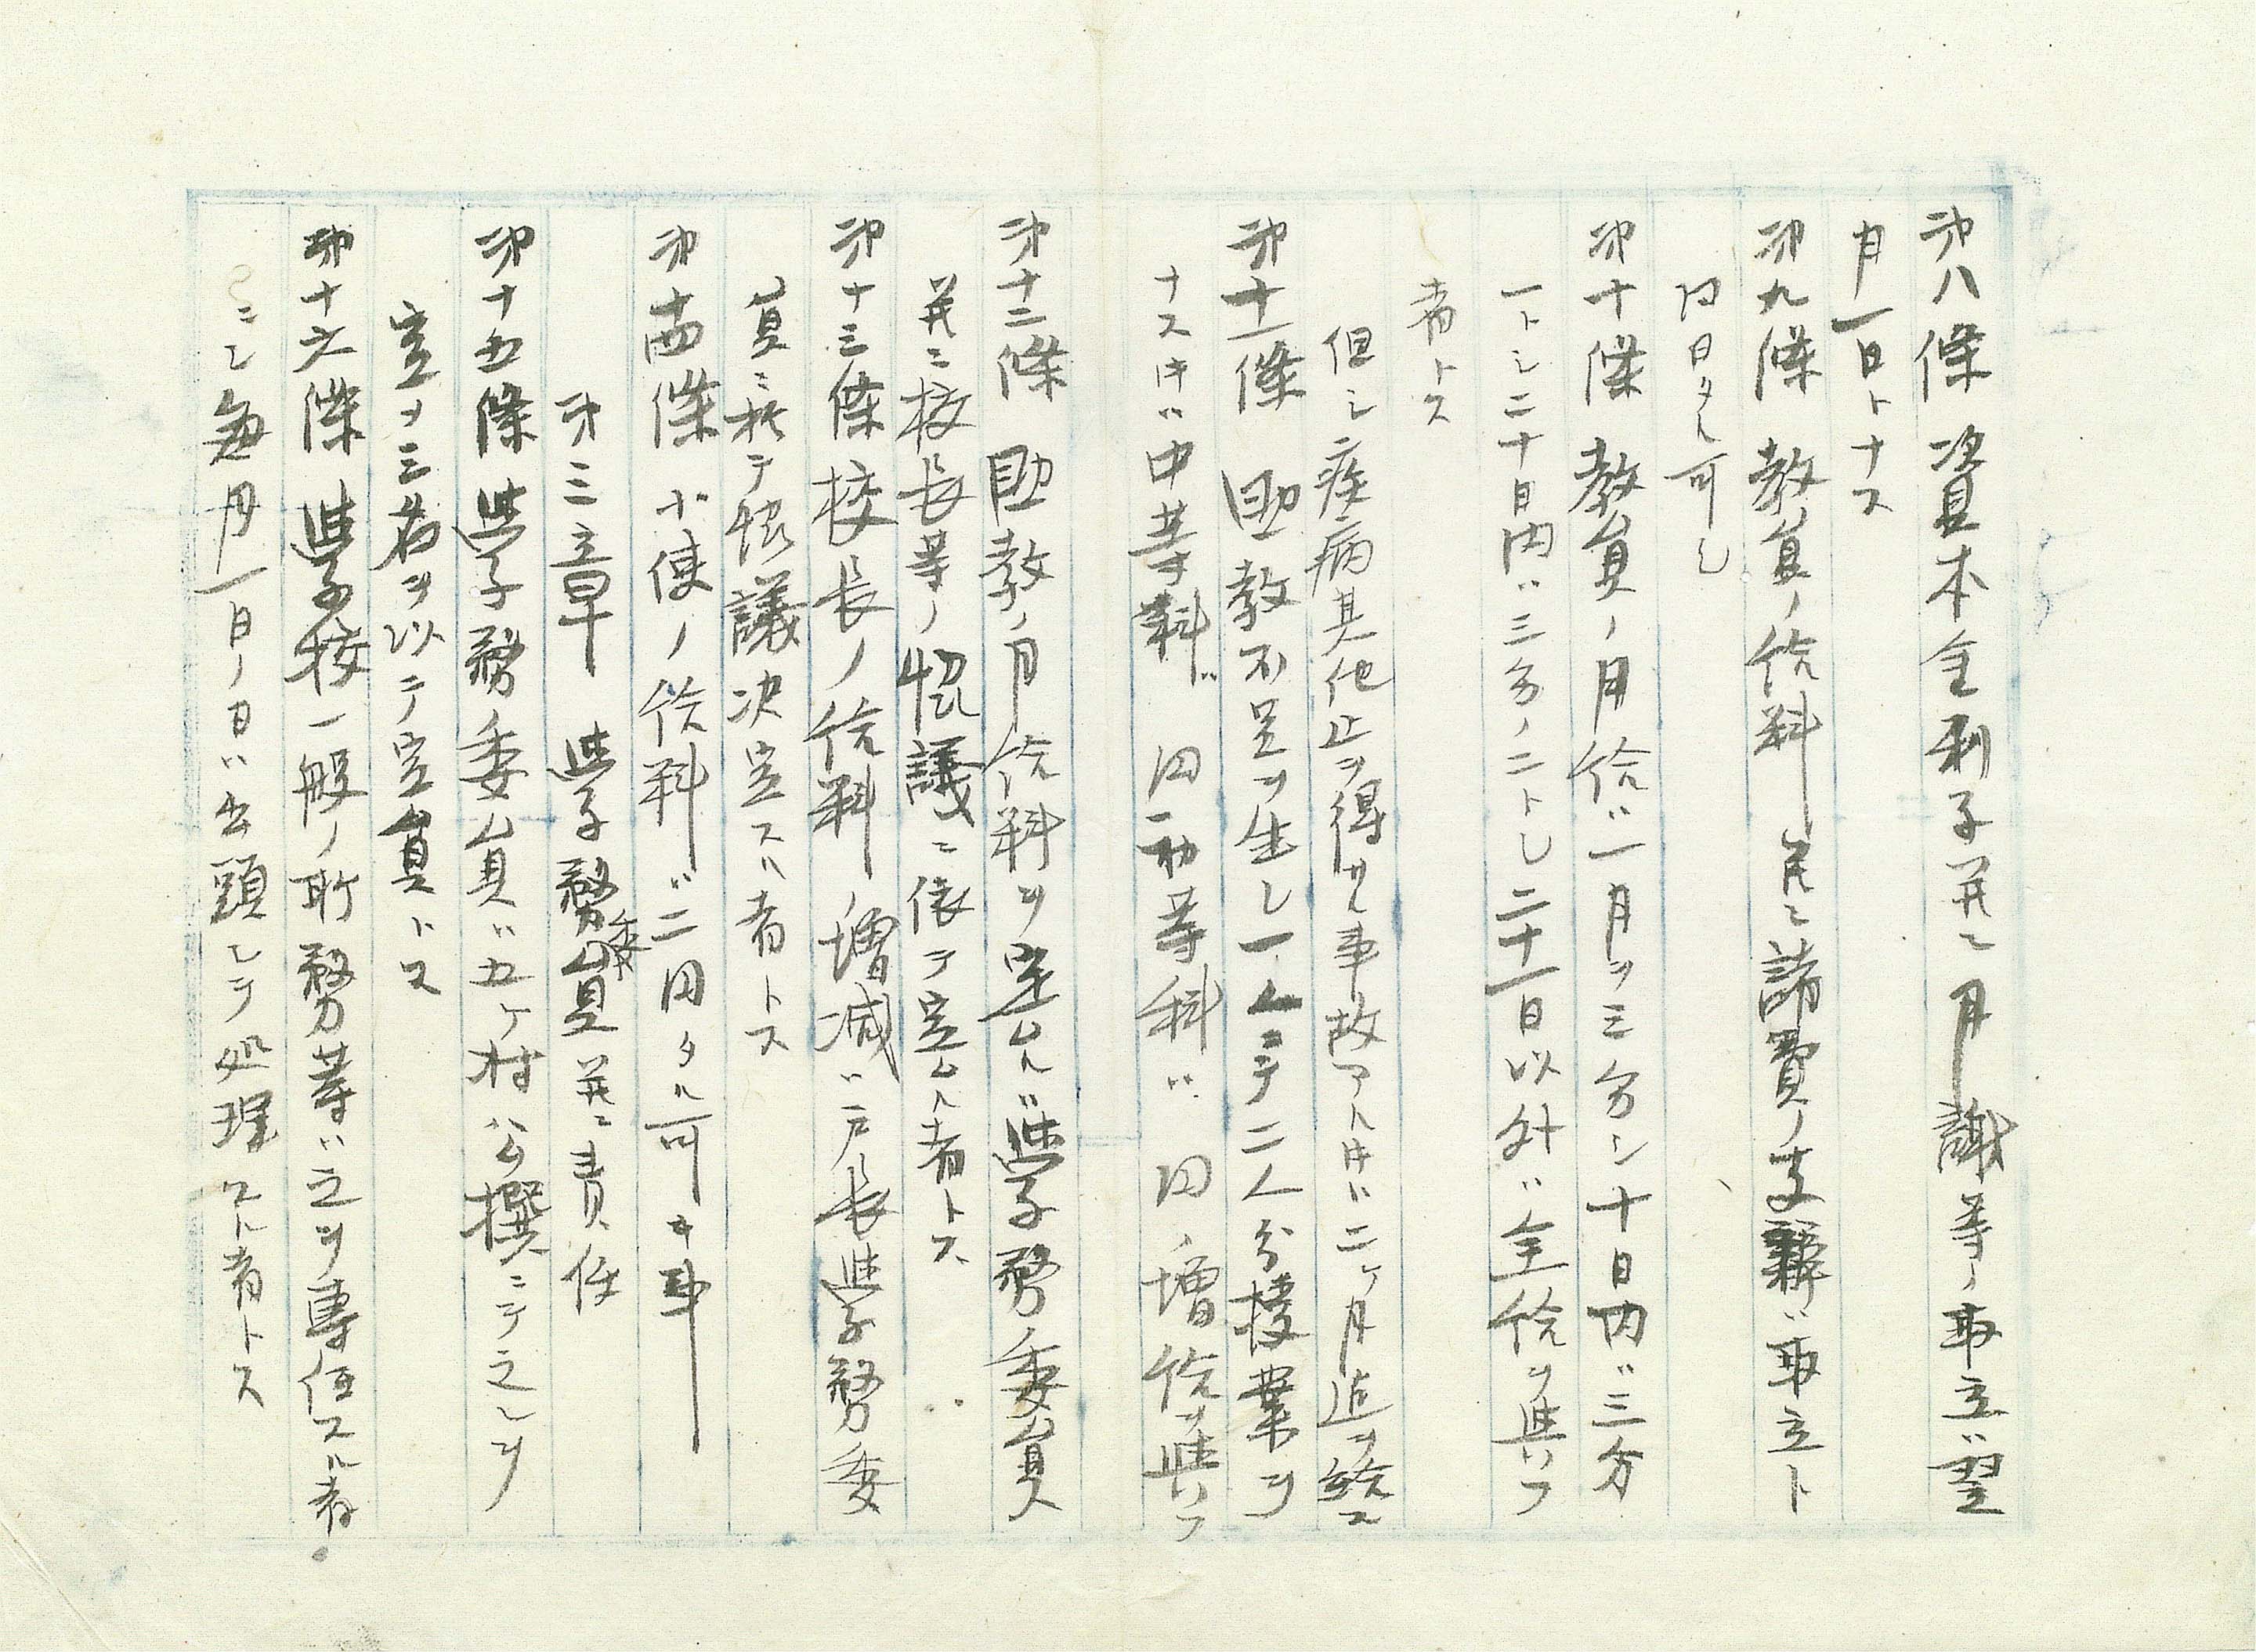 第八條 資本金利子并ニ月謝等ノ取立ハ翌
月一日トナス
第九條 教員ノ給料并ニ諸費ノ支辨ハ取立ト
同日タル可シ
第十條 教員ノ月給ハ一月ヲ三分シ十日内ハ三分
一トシ二十日内ハ三分ノ二トシ二十一日以外ハ全給ヲ與フ
者トス
但シ疾病其他止ヲ得サル事故アル片ハ二ヶ月迠ヲ給ス
第十一條 助教不足ヲ生シ一人ニテ二人分授業ヲ
ナス片ハ中等科ハ 円 初等科ハ 円増給ヲ與フ
第十二條 助教ノ月給料ヲ定ムルハ學務委員
并ニ校長等ノ協議ニ依テ定ムル者トス
第十三條 校長ノ給料ノ増减ハ戸長學務委
員ニ於テ協議决定スル者トス
第十四條 小使ノ給料ハ二円タル可キ事
第三章 學務委員并ニ責任
第十五條 學務委員ハ五ヶ村公撰ニテ之レヲ
定メ三名ヲ以テ定員トス
第十六條 學校一般ノ所務等ハ之ヲ専任スル者
ニシ毎月一日ノ日ハ出頭シテ処理スル者トス